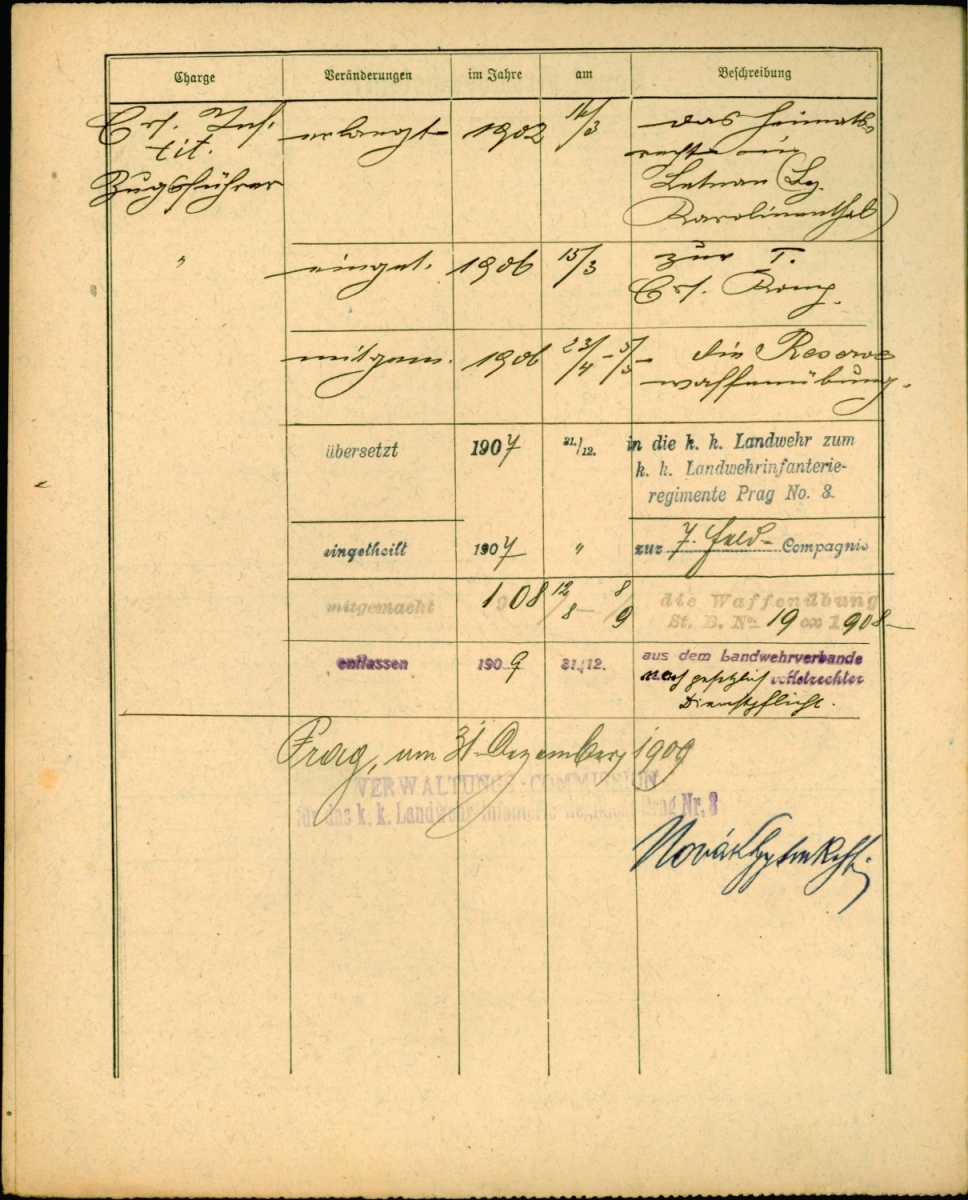 Charge Veränderungen im Jahre am Beschreibung
Ers. Inf.
tit.
Zugsführer
erlangt 1902 14/3 das Heimats-
recht in
Letnan (Bz.
Karolinenthal)
" einget. 1906 15/3 zur I.
Ers. Komp.
mitgem. 1906 23/4 - 5/5 - die Reserve
waffenübung.
übersetzt 1907 31./12. in die k. k. Landwehr zum
k. k. Landwehrinfanterie-
regimente Prag No. 8.
eingetheilt 1907 " zur 7. Feld- Compagnie
mitgemacht 1908 12/8 - 8/9 die Waffenübung
St. B. No. 19 ex 1908
entlassen 1909 31./12. aus dem Landwehrverbande
nach gesetzlich vollstreckter
Dienstpflicht.
Prag, am 31. Dezember 1909
VERWALTUNGS-COMMISSION
für das k. k. Landwehr-Infanterie-Regiment Prag Nr. 8
Novák